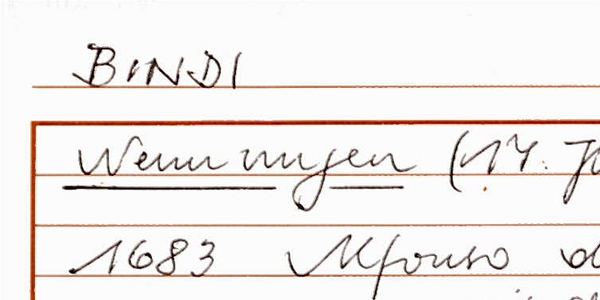 BINDI
Wennungen (17. Jh
1683 Alfonso d